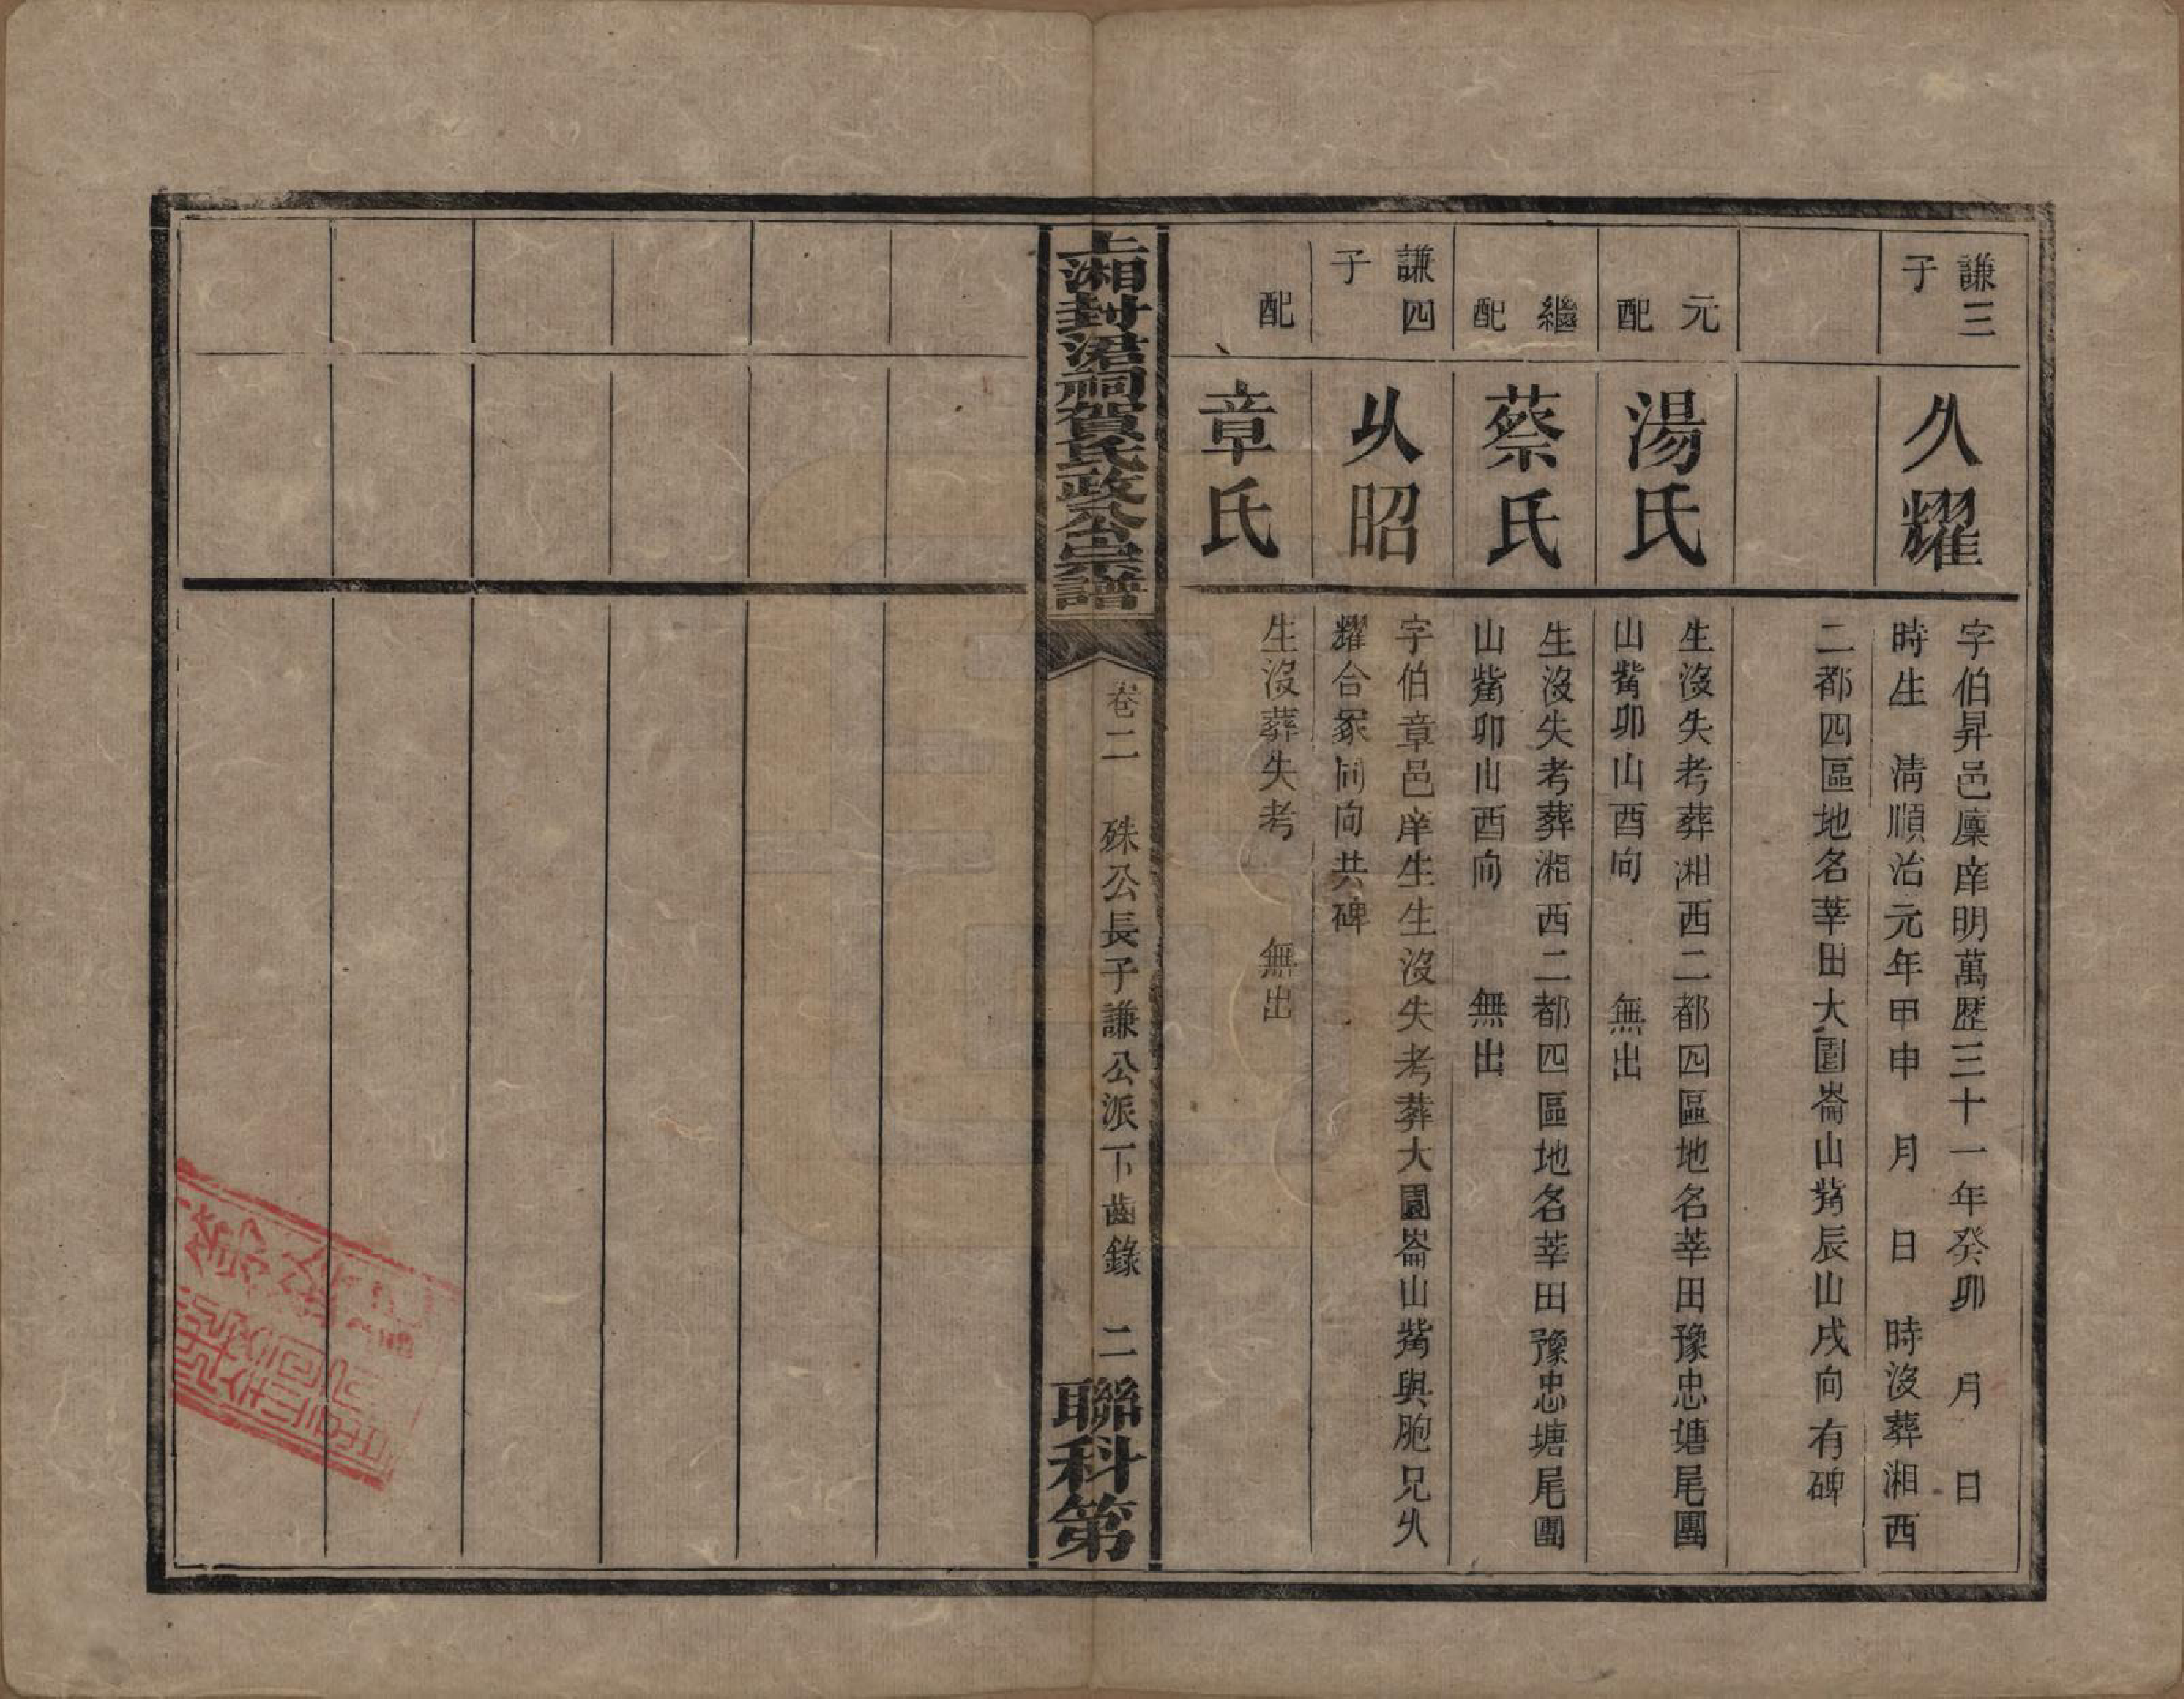 謙三
子
久耀
字伯昇邑廩庠明萬歷三十一年癸卯 月 日
時生 清順治元年甲申 月 日 時沒葬湘西
二都四區地名莘田大園崙山觜辰山戌向有碑
元
配
湯氏
生沒失考葬湘西二都四區地名莘田豫忠塘尾團
山觜卯山酉向 無出
繼
配
蔡氏
生沒失考葬湘西二都四區地名莘田豫忠塘尾團
山觜卯山酉向 無出
謙四
子
久昭
字伯章邑庠生生沒失考葬大園崙山觜與胞兄久
耀合冢同向共碑
配
章氏
生沒葬失考 無出
上湘封涒祠賀氏政公宗譜
卷二 殊公長子謙公派下齒錄 二
聯科第